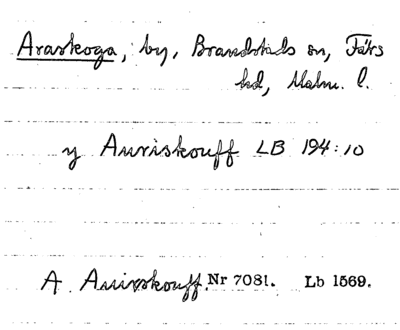 Araskoga, by, Brandstads sn, Färs
hd, Malm. l.
y Auriskouff LB 194:10
A. Auirskouff. Nr 7081. Lb 1569.